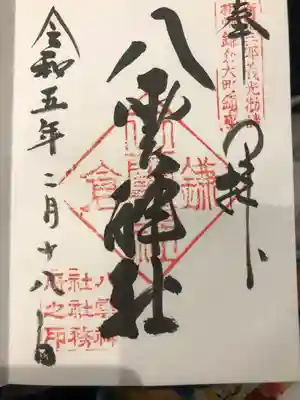 奉拝
八雲神社
令和五年二月十八日
鎌倉
八雲神
社社務
所之印